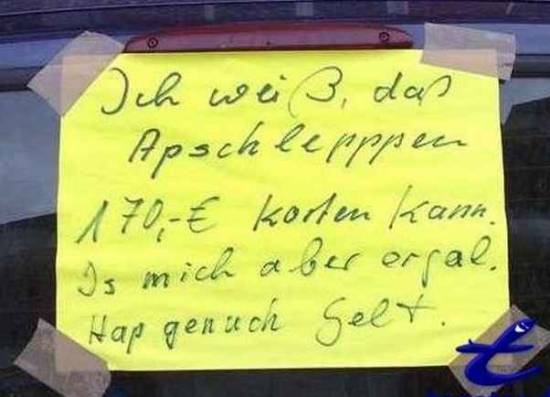 Ich weiß, daß
Apschlepppen
170,-€ kosten kann.
Is mich aber ergal.
Hap genuch Gelt.